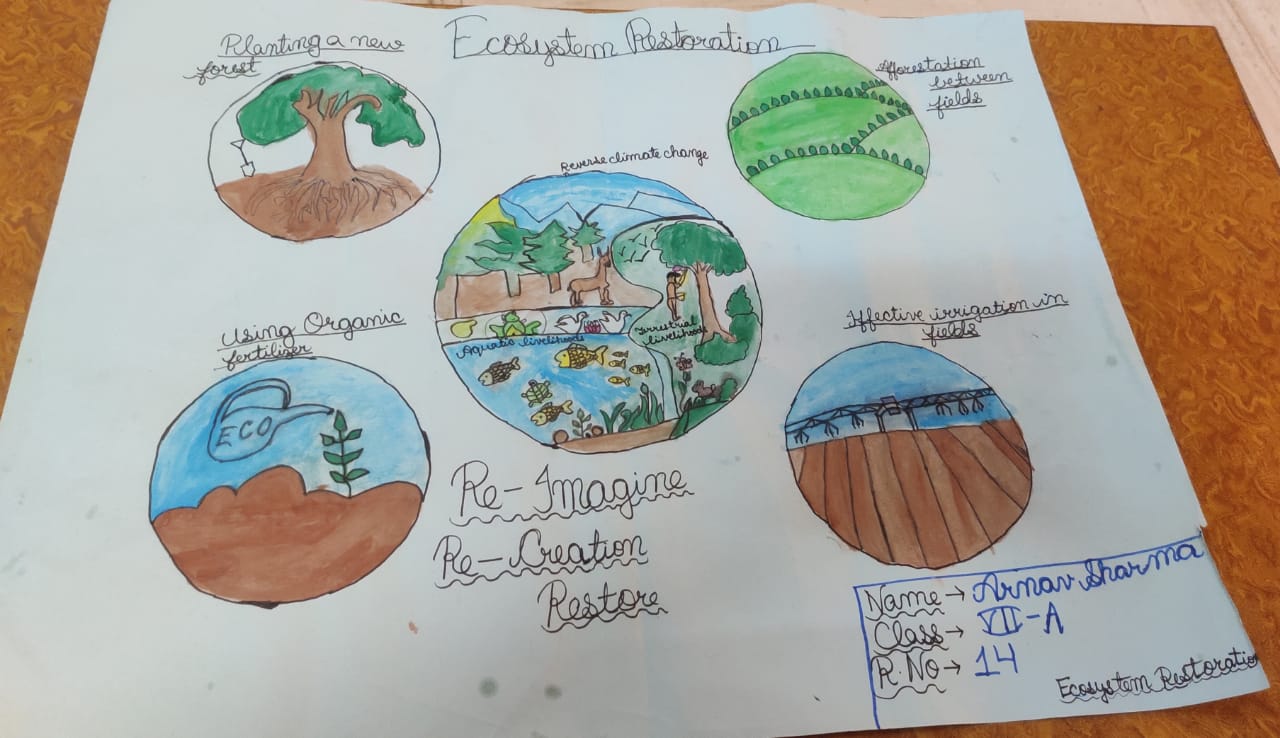 Ecosystem Restoration
Planting a new
forest
Afforestation
between
fields
Reverse climate change
Using Organic
fertilizer
ECO
Aquatic livelihoods
Terrestrial
livelihoods
Effective irrigation in
fields
Re-Imagine
Re-Creation
Restore
Name→ Arnav Sharma
Class→ VII-A
R.No→ 14
Ecosystem Restoration